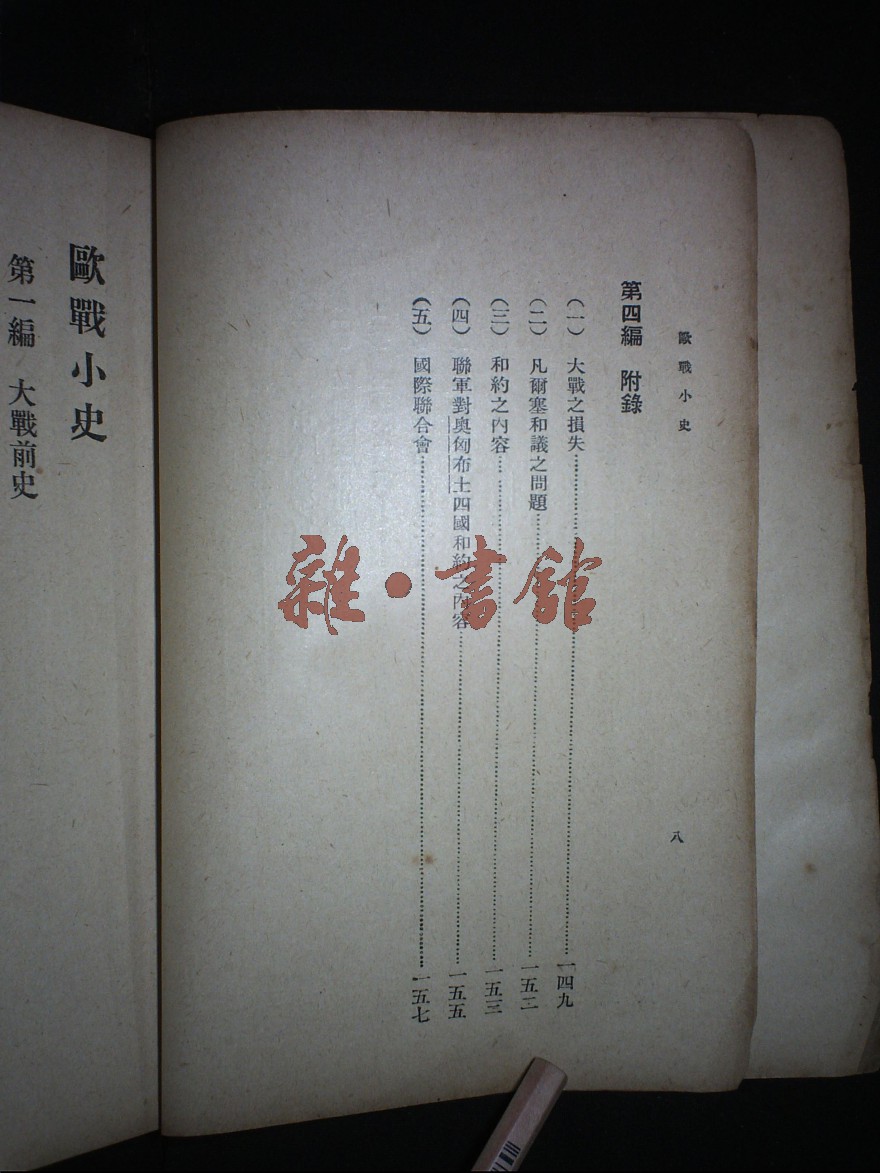 歐戰小史
八
第四編 附錄
（一） 大戰之損失……一四九
（二） 凡爾塞和議之問題……一五二
（三） 和約之內容……一五三
（四） 聯軍對奧匈布土四國和約之內容……一五五
（五） 國際聯合會……一五七
歐戰小史
第一編 大戰前史
雜·書館